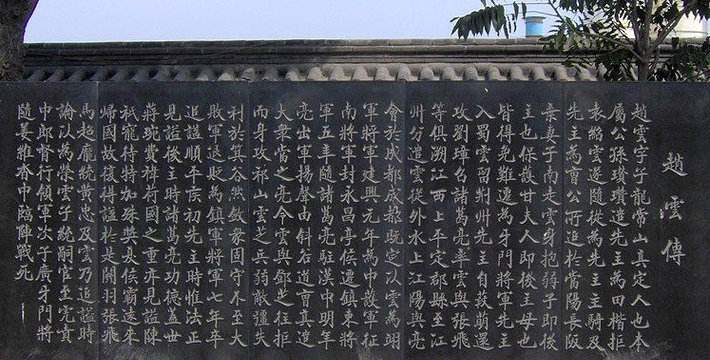 趙雲傳
趙雲字子龍常山真定人也本
屬公孫瓚瓚遣先主為田楷拒
袁紹雲遂隨從為先主主騎及
先主為曹公所追於當陽長阪
棄妻子南走雲身抱弱子即後
主也保護甘夫人即後主母也
皆得免難遷為牙門將軍先主
入蜀雲留荊州先主自葭萌還
攻劉璋召諸葛亮率雲與張飛
等俱溯江西上平定郡縣至江
州分遣雲從外水上江陽與亮
會於成都成都既定以雲為翊
軍將軍建興元年為中護軍征
南將軍封永昌亭侯遷鎮東將
軍五年隨諸葛亮駐漢中明年
亮出軍揚聲由斜谷道曹真遣
大眾當之亮令雲與鄧芝往拒
而身攻祁山雲芝兵弱敵彊失
利於箕谷然斂眾固守不至大
敗軍退貶為鎮軍將軍七年卒
追諡順平侯初先主時惟法正
見諡後主時諸葛亮功德蓋世
蔣琬費禕荷國之重亦見諡陳
祗寵待特加殊獎夏侯霸遠來
歸國故復得諡於是關羽張飛
馬超龐統黃忠及雲乃追諡時
論以為榮雲子統嗣官至虎賁
中郎督行領軍次子廣牙門將
隨姜維沓中臨陣戰死